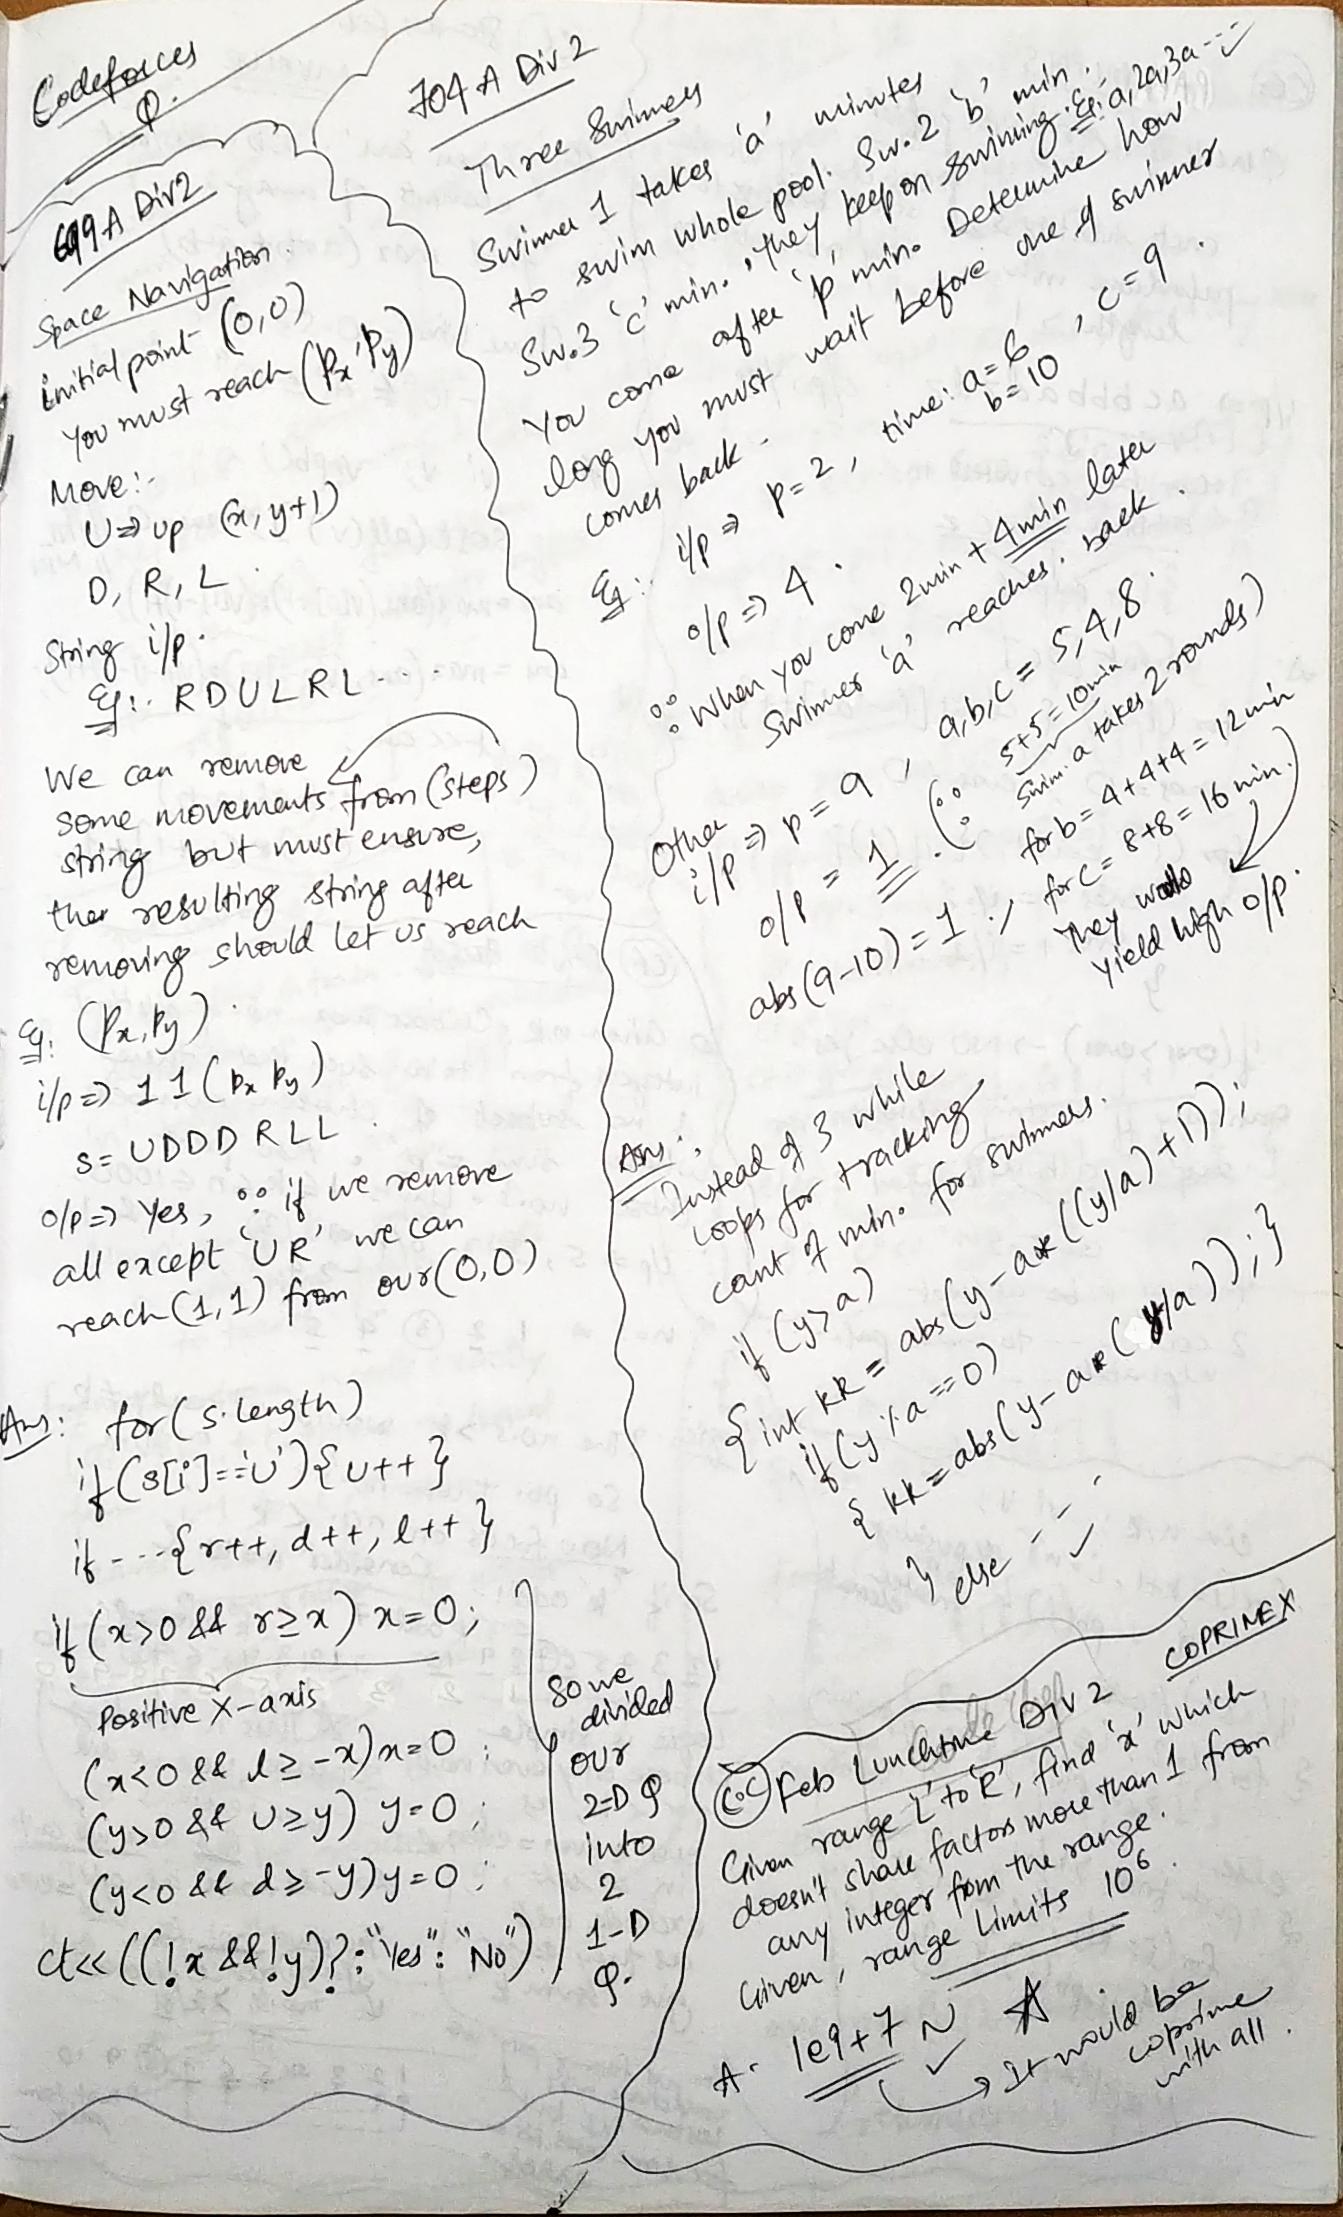 Codeforces
Q.
699A Div2
Space Navigation.
initial point (0,0)
You must reach (Px, Py)
Move:-
U⇒ up (x, y+1)
D, R, L.
String i/p.
Eg:. RDULRL....
We can remove
some movements from (steps)
string but must ensure,
the resulting string after
removing should let us reach
(Px, Py).
Eg:
i/p ⇒ 1 1 (Px Py)
S= UDDDRLL.
o/p ⇒ Yes, ∵ if we remove
all except 'UR' we can
reach (1,1) from our (0,0)
Ans: for (s.length)
if (s[i]=='U'){ U++ }
if ---{ r++, d++, l++ }
if (x>0 && r≥x) x=0;
Positive X-axis
(x<0 && l≥-x) x=0;
(y>0 && U≥y) y=0;
(y<0 && d≥-y) y=0;
ct<<((!x &&!y)?:"Yes":"No")
So we
divided
our
2-D Q
into
2
1-D
Q.
704 A Div 2
Three Swimmers
Swimmer 1 takes 'a' minutes
to swim whole pool. Sw. 2 'b' min.
Sw.3 'c' min. , they keep on swimming. Eg: a,2a,3a---
You come after 'p' min. Determine how
long you must wait before one of swimmer
comes back.
Eg:. i/p ⇒ p=2, time: a=6, c=9.
b=10
o/p ⇒ 4.
∵ When you come 2min + 4min later
Swimmer 'a' reaches. back.
Other
i/p ⇒ p=9, a,b,c = 5,4,8.
o/p = 1. (∵ 5+5=10min
Swim. a takes 2 rounds)
abs(9-10)=1 ;, for b= 4+4+4=12min
for c= 8+8=16 min.
They
yield high o/p.
Ans:
Instead of 3 while
loops for tracking
cant of min. for swimmers.
if (y>a)
{ int kk = abs(y-a*((y/a)+1));
if (y%a==0)
{ kk=abs(y-a*(y/a));}
} else ---.
COPRIMEX
CC Feb Lunchtime Div 2
Given range 'L' to 'R', find 'x' which
doesn't share factors more than 1 from
any integer from the range.
Given, range Limits 10⁶.
A. 1e9+7 N
It would be
coprime
with all.